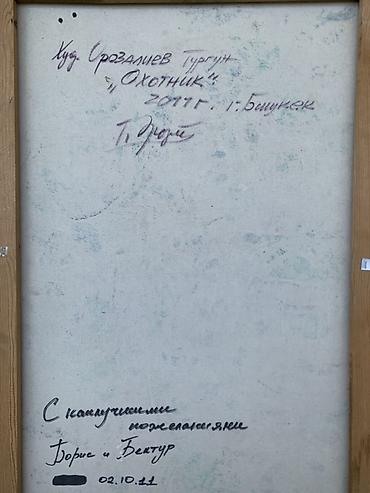 Худ. Орозалиев Тургун
"Охотник"
2011 г. г. Бишкек
С наилучшими
пожеланиями
Борис и Бектур
02.10.11